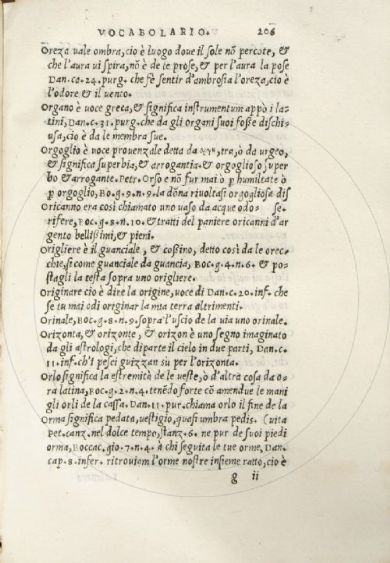 VOCABOLARIO. 206
Oreza vale ombra, cio è luogo doue il sole nõ percote, &
che l'aura ui spira, nõ è de le prose, & per l'aura la pose
Dan. ca. 24. purg. che fè sentir d'ambrosia l'oreza, cio è
l'odore & il uento.
Organo è uoce greca, & significa instrumentum appò i la=
tini, Dan. c. 31. purg. che da gli organi suoi fosse dischi=
usa, cio è da le membra sue.
Orgoglio è uoce prouenzale detta da tra, ò da urgeo,
& significa superbia, & arrogantia & orgoglioso super
bo & arrogante. Petr. Orso e nõ fur mai ò p humultate ò
p orgoglio, Bo. g. 9. n. 9. la dõna riuoltasi orgogliosa dis
Oricanno era cosi chiamato uno uaso da acque odo= se.
rifere, Boc. g. 8. n. 10. & tratti del paniere oricanni d'ar
gento bellissimi, & pieni.
Origliere è il guanciale, & coßino, detto così da le orec=
chie, si come guanciale da guancia, Boc. g. 4. n. 6. & po=
stagli la testa sopra uno origliere.
Originare cio è dire la origine, uoce di Dan. c. 20. inf. che
se tu mai odi originar la mia terra altrimenti.
Orinale, Boc. g. 8. n. 9. sopra l'uscio de la uia uno orinale.
Orizonta, & orizonte, & orizon è uno segno imaginato
da gli astrologi, che diparte il cielo in due parti, Dan. c.
11. inf. ch'i pesci guizzan su per l'orizonta.
Orlo significa la estremità de le ueste, ò d'altra cosa da o=
ra latina, Boc. g. 2. n. 4. tenẽdo forte cõ amendue le mani
gli orli de la cassa. Dan. 11. pur. chiama orlo il fine de la
Orma significa pedata, uestigio, quasi umbra pedis. (uita
Pet. canz. nel dolce tempo, stanz. 6. ne pur de suoi piedi
orma, Boccac. gio. 7. n. 4. à chi seguita le tue orme, Dan.
cap. 8. infer. ritrouiam l'orme nostre insieme ratto, cio è
g ii